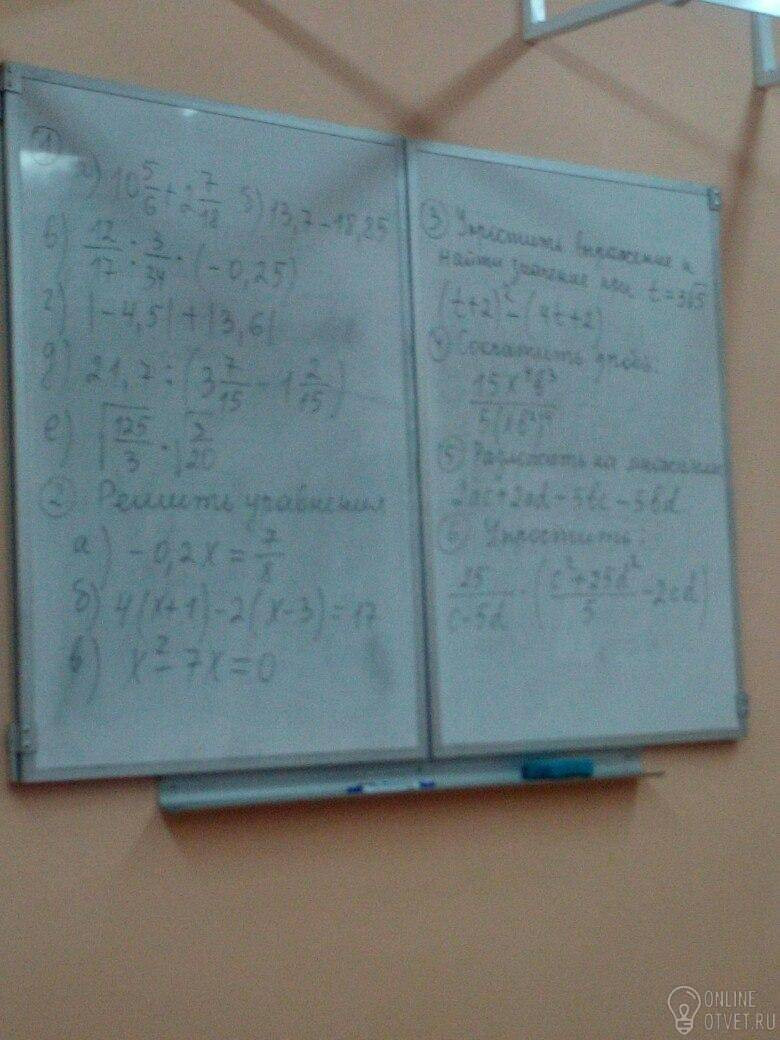 ① а) 10 5/6 + 2 7/18 б) 13,7 – 18,25
в) 12/17 : 3/34 · (–0,25)
г) |–4,5| + |3,6|
д) 21,7 : (3 7/15 – 1 2/15)
е) √125/3 · √2/20
② Решить уравнения
а) –0,2x = 7/8
б) 4(x+1)–2(x–3)=17
в) x² – 7x = 0
③ Упростить выражение и
найти значение при t=3√5
(t+2)² – (4t+2)
④ Сократить дробь:
⑤ Разложить на множители
2ac+2ad–5bc–5bd
⑥ Упростить:
25/(c–5d) · ((c²+25d²)/5 – 2cd)
ONLINE
OTVET.RU